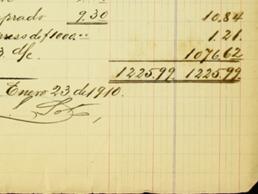 prado 9.30 10.84
press de $1000.- 1.21
3. d/c 1076.62
1225.99 1225.99
Enero 23 de 1910.